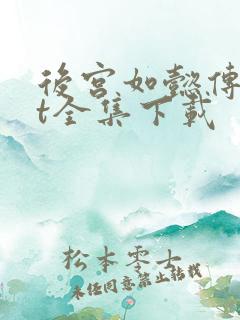 後宮如懿傳
t全集下載
松本零士
未经同意禁止转载